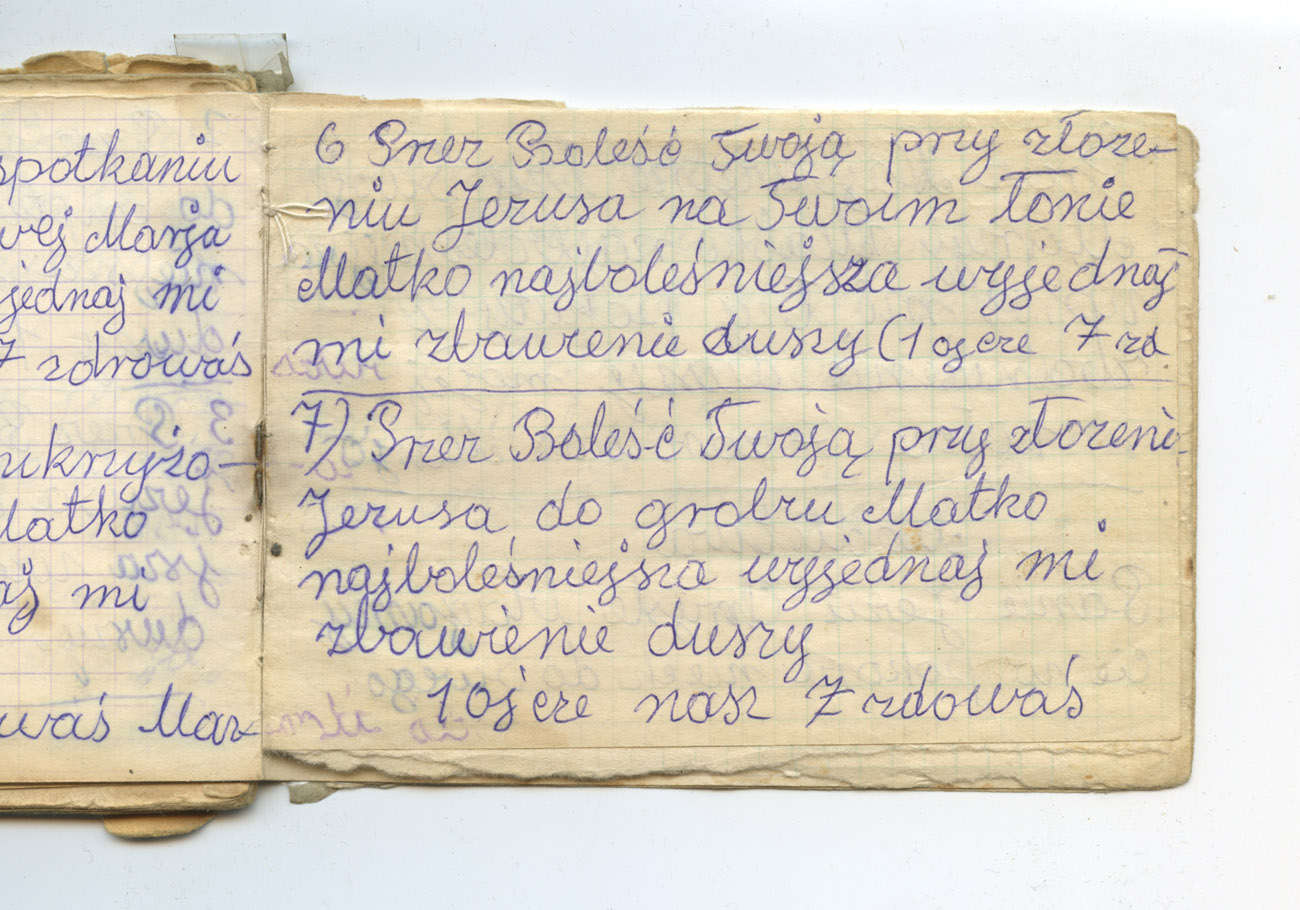 spotkaniu
wej Marja
jednaj mi
7 zdrowaś
ukrzyżo-
Matko
aj mi
waś Mar-
6 Przez Boleść Twoją przy złoże-
niu Jezusa na Twoim łonie
Matko najboleśniejsza wyjednaj
mi zbawienie duszy (1 ojcze 7 zd
7) Przez Boleść Twoją przy złożeni
Jezusa do grobzu Matko
najboleśniejsza wyjednaj mi
zbawienie duszy
1 ojcze nasz 7 zdowaś